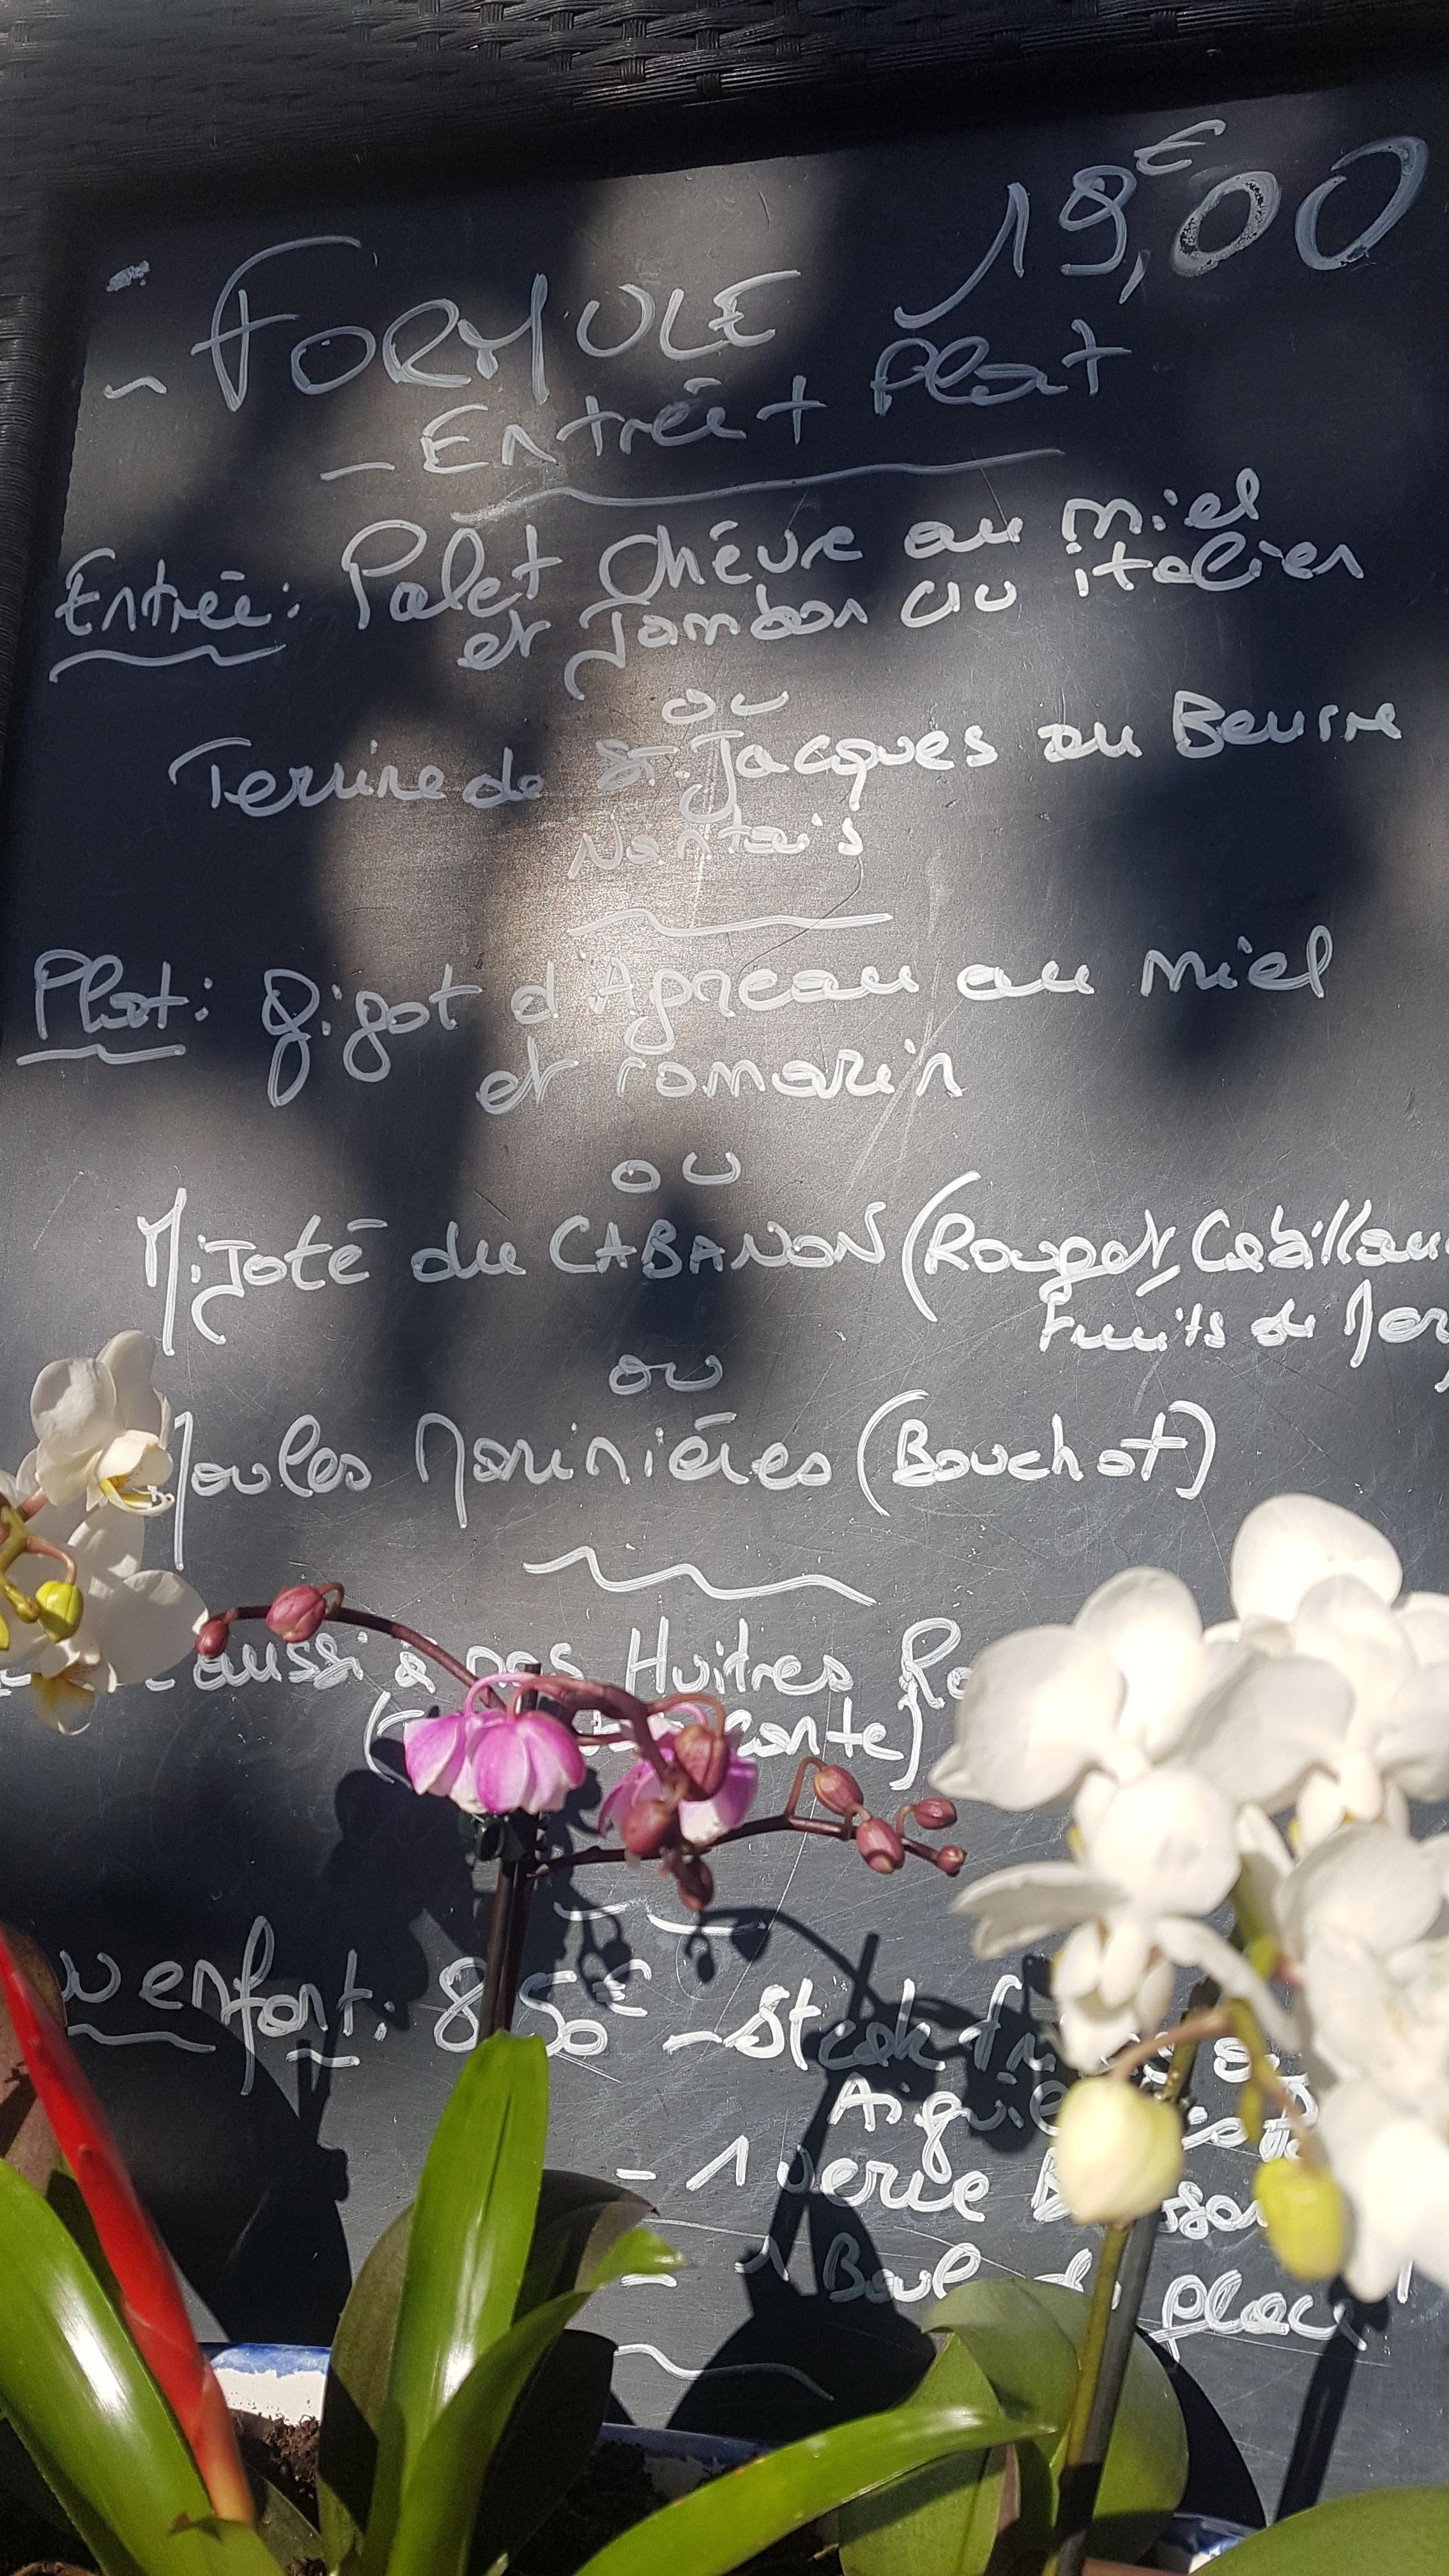 19,00€
- FORMULE
- Entrée + Plat
Entrée: Palet Chévre au miel
et Jambon cru italien
ou
Terrine de St. Jacques au Beurre
Nantais
Plat: Gigot d'Agneau au miel
et romarin
ou
Mijoté du CABANON (Rouget, Cabillau
Fruits de Mer
ou
Moules Marinières (Bouchot)
aussi à nos Huitres
enfant: 8,50€ - Steak
- 1 verre
- 1 Boule
place